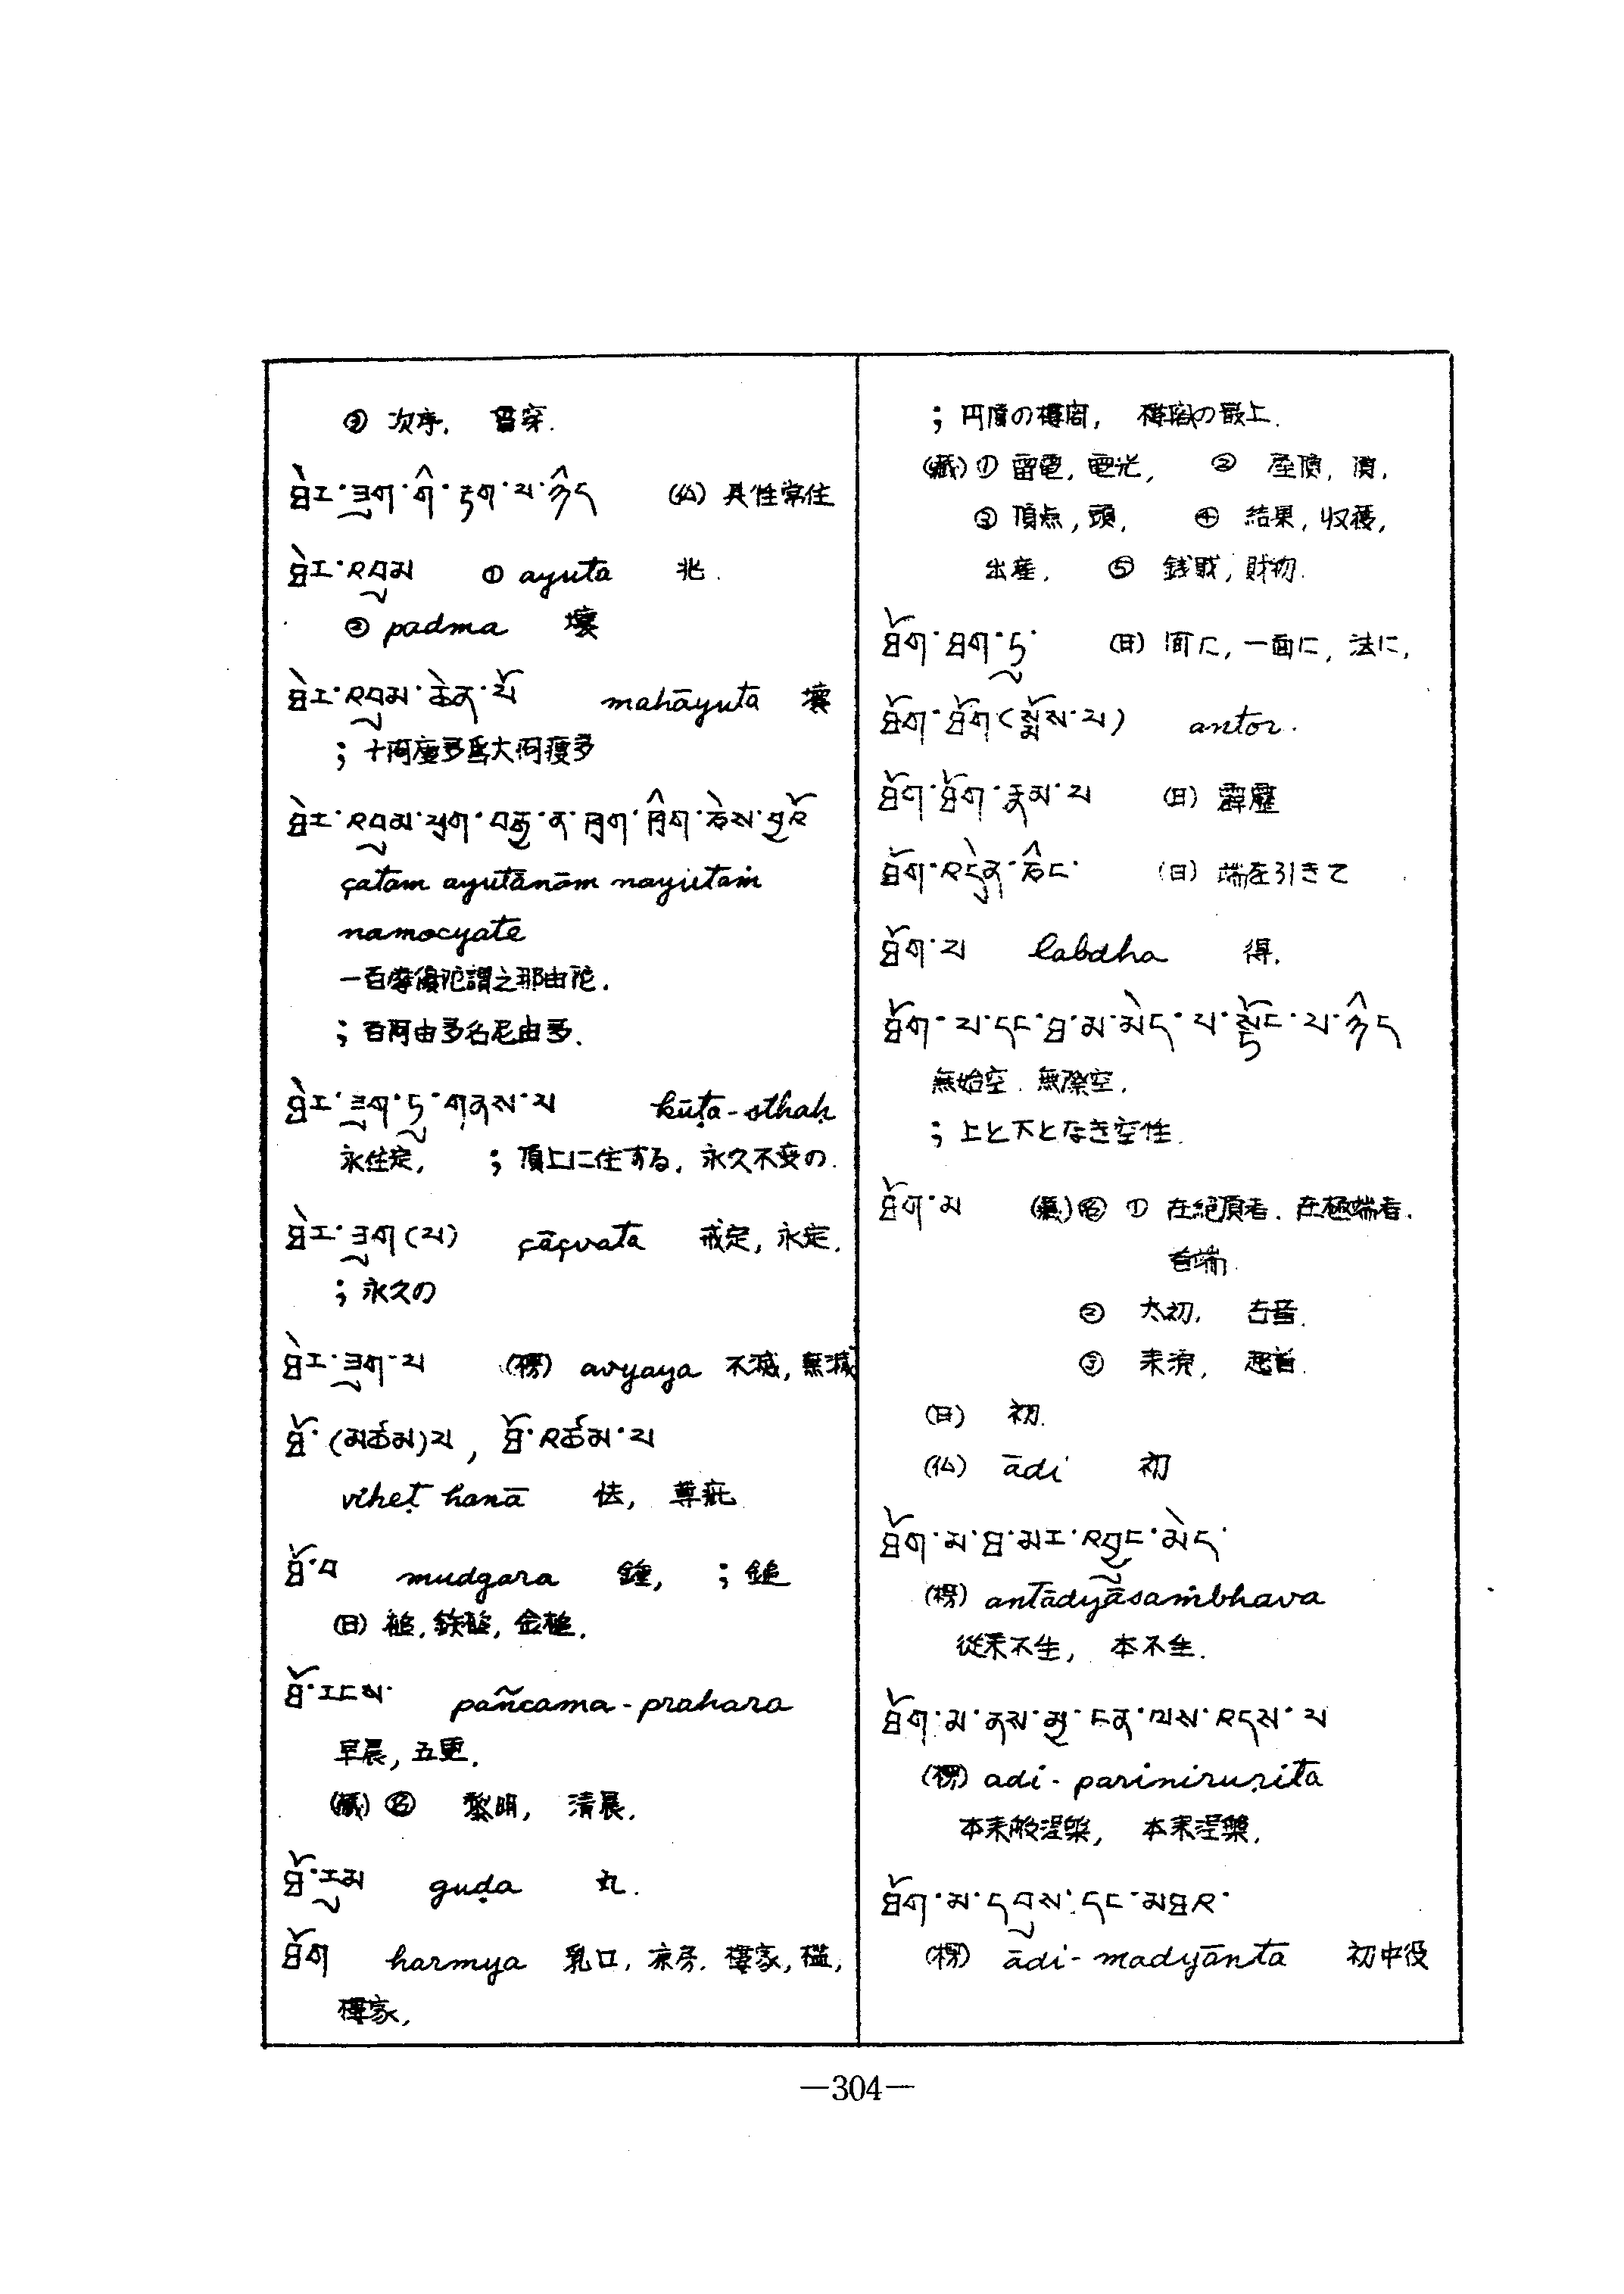 ② 次序, 貫穿.
ཐེར་ཟུག་གི་རྟག་པ་ཉིད (仏) 具性常住
ཐེར་འབུམ ① ayuta 兆.
② padma 壌
ཐེར་འབུམ་ཆེན་པོ mahāyuta 壌
; 十阿庾多為大阿庾多
ཐེར་འབུམ་ཕྲག་བརྒྱ་ན་ཁྲག་ཁྲིག་ཅེས་བྱའོ
çatam ayutānām nayutaṁ
namocyate
一百 謂之那由陀.
; 百阿由多名尼由多.
ཐེར་ཟུག་ཏུ་གནས་པ kūṭa-sthaḥ
永住定, ; 頂上に住する, 永久不変の.
ཐེར་ཟུག(པ) çāçvata 戒定, 永定.
; 永久の
ཐེར་ཟུག་པ (楞) avyaya 不滅, 無滅
ཐོ་(མཚམ)པ, ཐོ་འཚམ་པ
viheṭ hanā 怯,
ཐོ་བ mudgara 鍾, ; 鎚
(日) 鎚, 金槌.
ཐོ་རངས་ pañcama-prahara
早晨, 五更.
(蔵) 名 黎明, 清晨.
ཐོ་རུམ guḍa 丸.
ཐོག harmya 乳口, 楼家,
楼家,
; 円頂の楼閣, 楼閣の最上.
(蔵) ① 雷電, 電光, ② 屋頂, 頂,
③ 頂点, 頭, ④ 結果, 収穫,
出産, ⑤ 銭財, 財物.
ཐོག་ཐག་ཏུ་ (日) 面に, 一面に, 法に,
ཐོག་ཐོག(སྨོས་པ) antor.
ཐོག་ཐོག་རྣམ་པ (日) 霹靂
ཐོག་འདྲེན་ཅིང་ (日) 端を引きて
ཐོག་པ labdha 得.
ཐོག་པ་དང་ཐ་མ་མེད་པ་སྟོང་པ་ཉིད
無始空. 無際空.
; 上と下となき空性.
ཐོག་མ (蔵) 名 ① 在絶頂者. 在極端者.
者端.
② 太初, 古昔.
③ 来源, 起首.
(日) 初.
(仏) ādi 初
ཐོག་མ་ཐ་མར་འབྱུང་མེད་
(楞) antādyāsaṁbhava
従来不生, 本不生.
ཐོག་མ་ནས་མྱ་ངན་ལས་འདས་པ
(楞) adi-parinirurita
本来般涅槃, 本来涅槃.
ཐོག་མ་དབུས་དང་མཐར་
(楞) ādi-madyānta 初中後
—304—